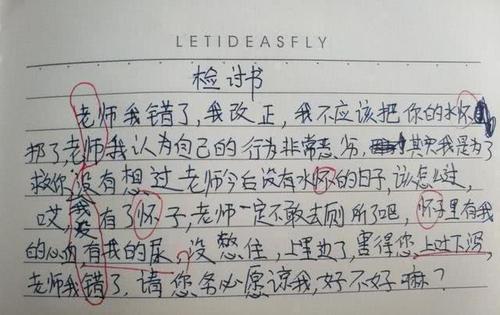 LETIDEASFLY
检讨书
老师我错了,我改正,我不应该把你的水怀
扔了,老师我认为自己的行为非常恶劣,其实我是为了
救你,没有想过老师今后没有水怀的日子,该怎么过,
哎,我没有了怀子,老师一定不敢去厕所了吧,怀子里有我
的心内有我的尿,没憋住,上里边了,害得您上吐下泻,
老师我错了,请您务必愿谅我,好不好嘛?